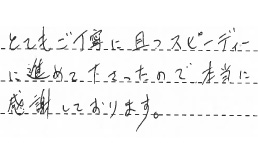 とてもご丁寧に且つスピーディー
に進めて下さったので本当に
感謝しております。